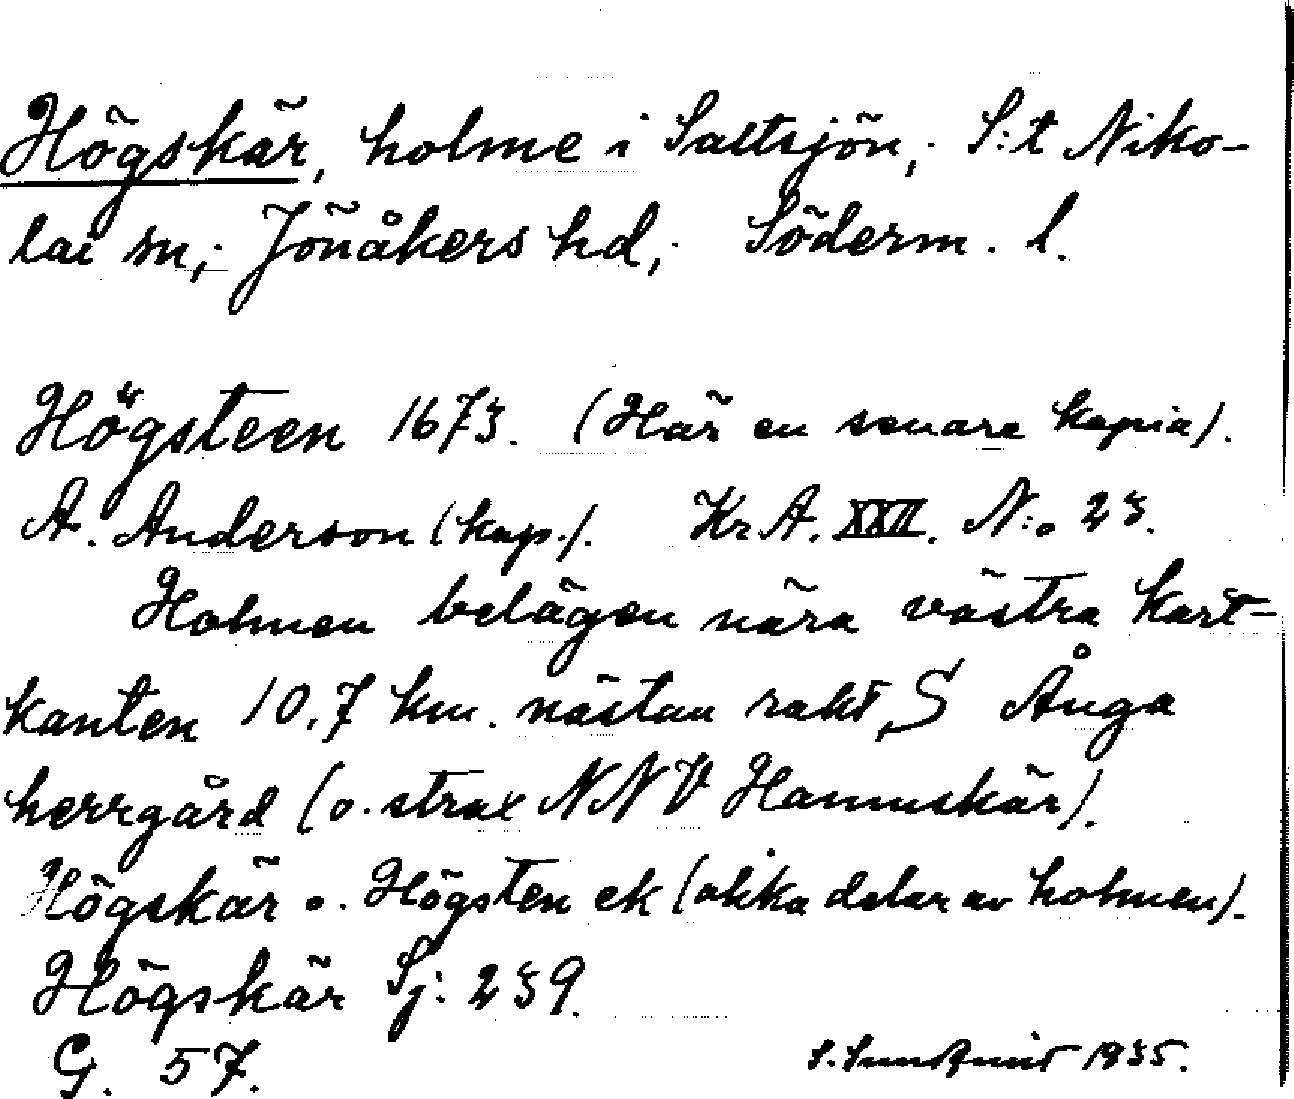 Högskär, holme i Saltsjön, S:t Niko-
lai sn, Jönåkers hd, Söderm. l.
Högsteen 1673. (Här en senare kopia).
A. Anderson (kap.). Kr A. XXII. N:o 23.
Holmen belägen nära västra kart-
kanten 10,7 km. nästan rakt S Ånga
herrgård (o. strax NNV Hamnskär).
Högskär o. Högsten ek (olika delar av holmen).
Högskär Sj: 239.
G. 57. S. Sundqvist 1935.